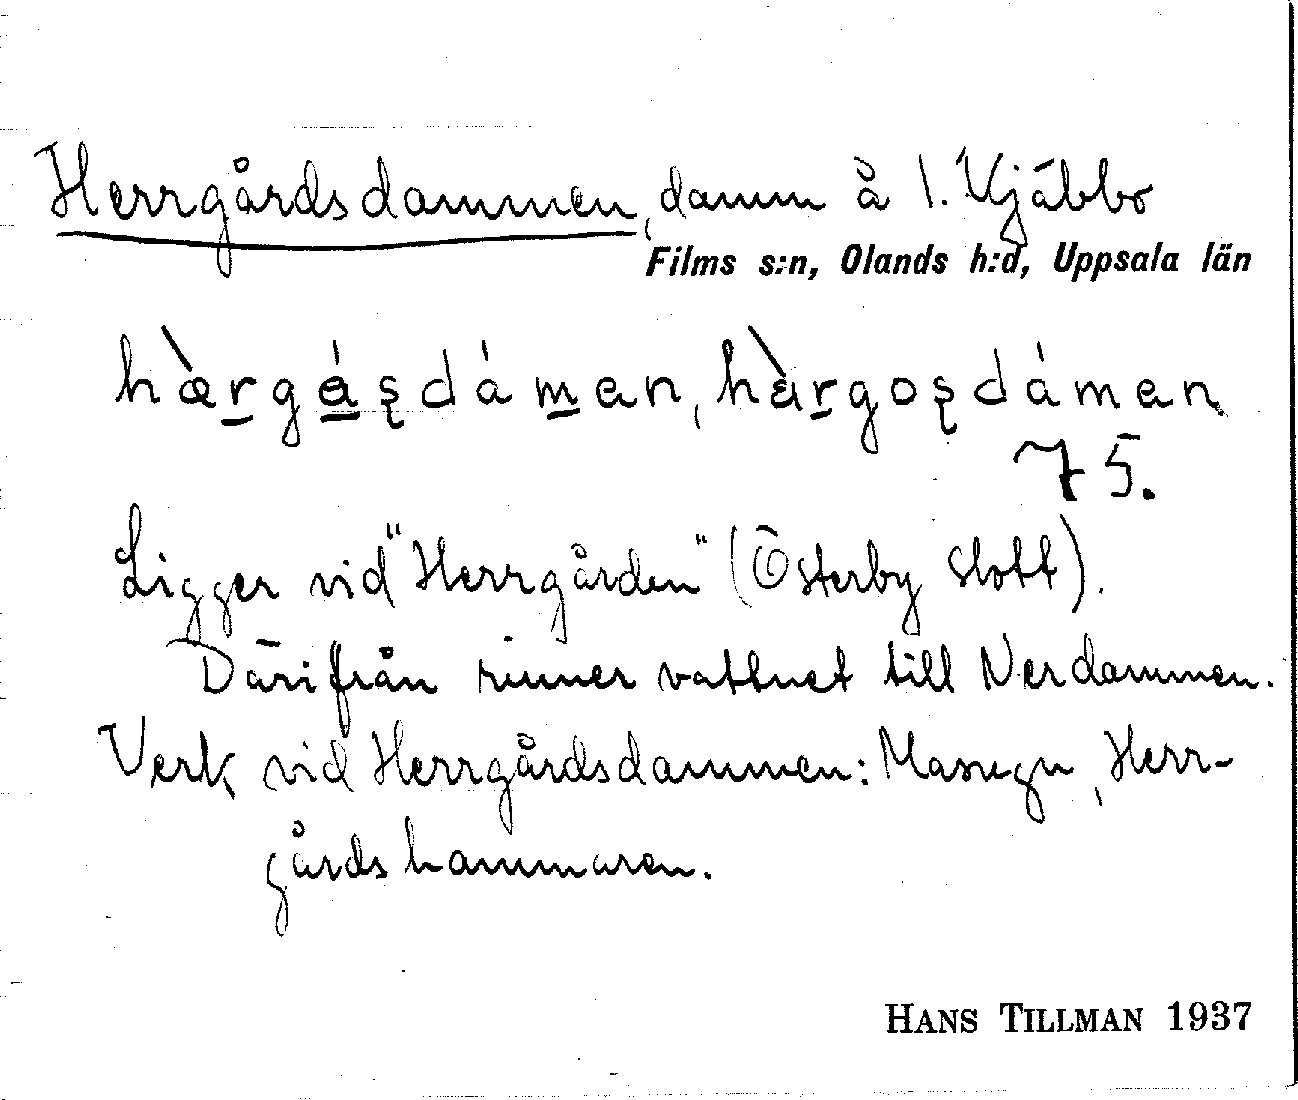 Herrgårdsdammen, damm å 1. Kjäbbo
Films s:n, Olands h:d, Uppsala län
hæ̀rgáʂdámen, hàrgoʂdámen
75.
Ligger vid "Herrgården" (Österby slott).
Därifrån rinner vattnet till Nerdammen.
Verk vid Herrgårdsdammen: Masugn, Herr-
gårdshammaren.
HANS TILLMAN 1937